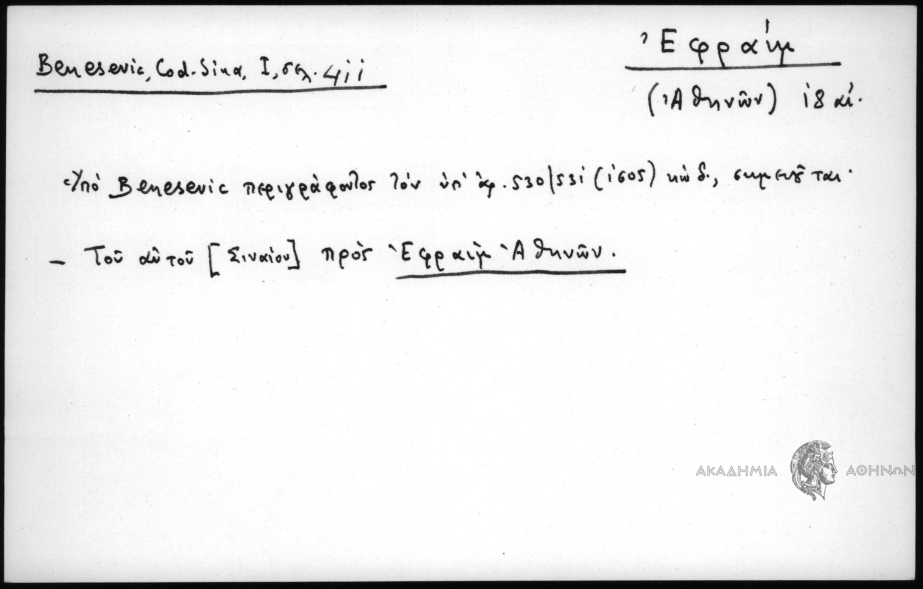 Benesevic, Cod. Sina, I, σελ. 411
Ἐφραίμ
(Ἀθηνῶν) 18 αἰ.
Ὑπό Benesevic περιγράφοντος τόν ὑπ' ἀρ. 530/531 (1605) κώδ., σημειοῦται·
- Τοῦ αὐτοῦ [Σιναίου] πρὸς Ἐφραὶμ Ἀθηνῶν.
ΑΚΑΔΗΜΙΑ ΑΘΗΝΩΝ